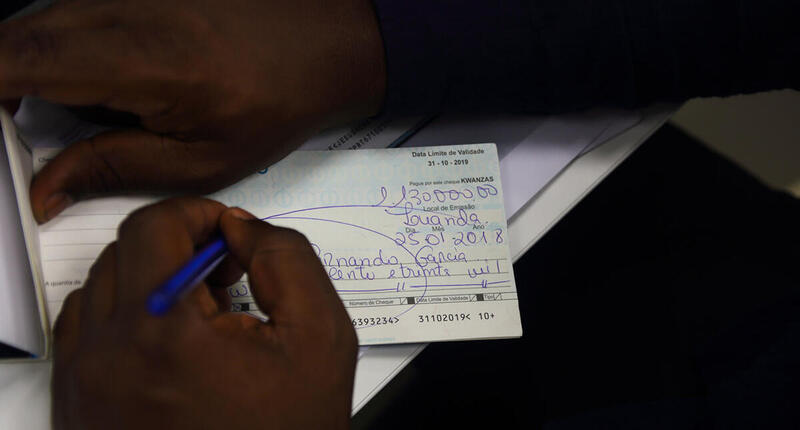 Data Limite de Validade
31 - 10 - 2019
Pague por este cheque KWANZAS
130.000.00
Local de Emissão
Luanda
Dia Mês Ano
25 01 2018
Garcia
A quantia de
cento e trinta mil
Número do Cheque Data Limite de Validade Tipo
6393234> 31102019< 10+